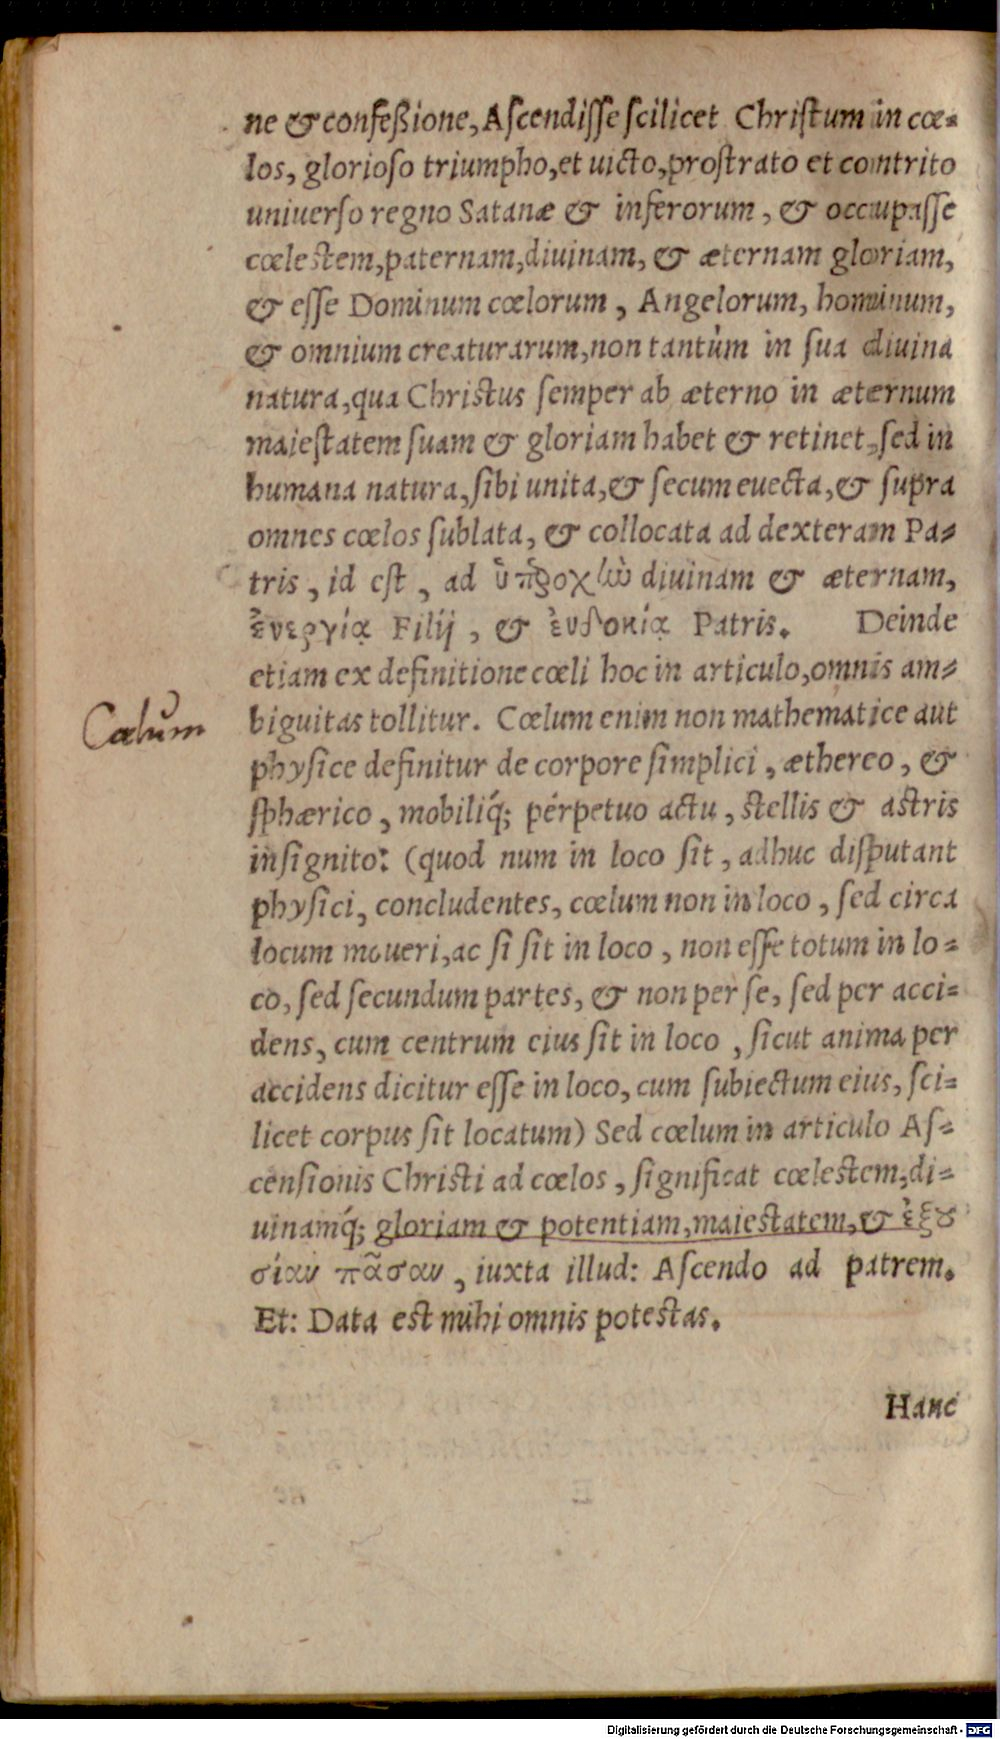 ne & confeßione, Ascendisse scilicet Christum in cœ-
los, glorioso triumpho, et uicto, prostrato et contrito
uniuerso regno Satanæ & inferorum, & occupasse
cœlestem, paternam, diuinam, & æternam gloriam,
& esse Dominum cœlorum, Angelorum, hominum,
& omnium creaturarum, non tantùm in sua diuina
natura, qua Christus semper ab æterno in æternum
maiestatem suam & gloriam habet & retinet, sed in
humana natura, sibi unita, & secum euecta, & supra
omnes cœlos sublata, & collocata ad dexteram Pa-
tris, id est, ad ὑπεροχὼ diuinam & æternam,
ἐνεργίᾳ Filij, & ἐυδοκίᾳ Patris. Deinde
etiam ex definitione cœli hoc in articulo, omnis am-
Cœlum
biguitas tollitur. Cœlum enim non mathematice aut
physice definitur de corpore simplici, æthereo, &
sphærico, mobiliq́; pérpetuo actu, stellis & astris
insignito: (quod num in loco sit, adhuc disputant
physici, concludentes, cœlum non in loco, sed circa
locum moueri, ac si sit in loco, non esse totum in lo-
co, sed secundum partes, & non per se, sed per acci-
dens, cum centrum eius sit in loco, sicut anima per
accidens dicitur esse in loco, cum subiectum eius, sci-
licet corpus sit locatum) Sed cœlum in articulo As-
censionis Christi ad cœlos, significat cœlestem, di-
uinamq́; gloriam & potentiam, maiestatem, & ἐξου
σίαν πᾶσαν, iuxta illud: Ascendo ad patrem.
Et: Data est mihi omnis potestas.
Hanc
Digitalisierung gefördert durch die Deutsche Forschungsgemeinschaft - DFG